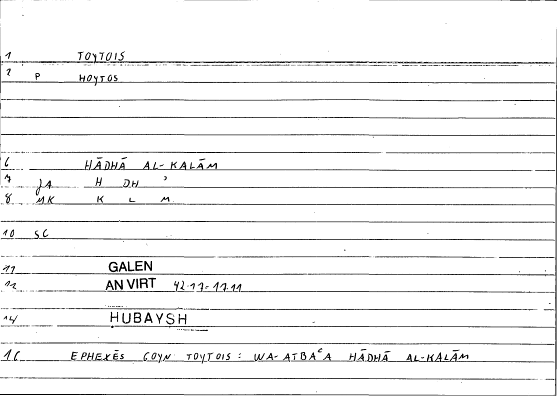 1 TOYTOIS
2 P HOYTOS
6 HĀDHĀ AL-KALĀM
7 JA H DH ʾ
8 MK K L M
10 SC
11 GALEN
12 AN VIRT 42.11-11.11
14 HUBAYSH
16 EPHEXĒS GOYN TOYTOIS: WA-ATBAʿA HĀDHĀ AL-KALĀM